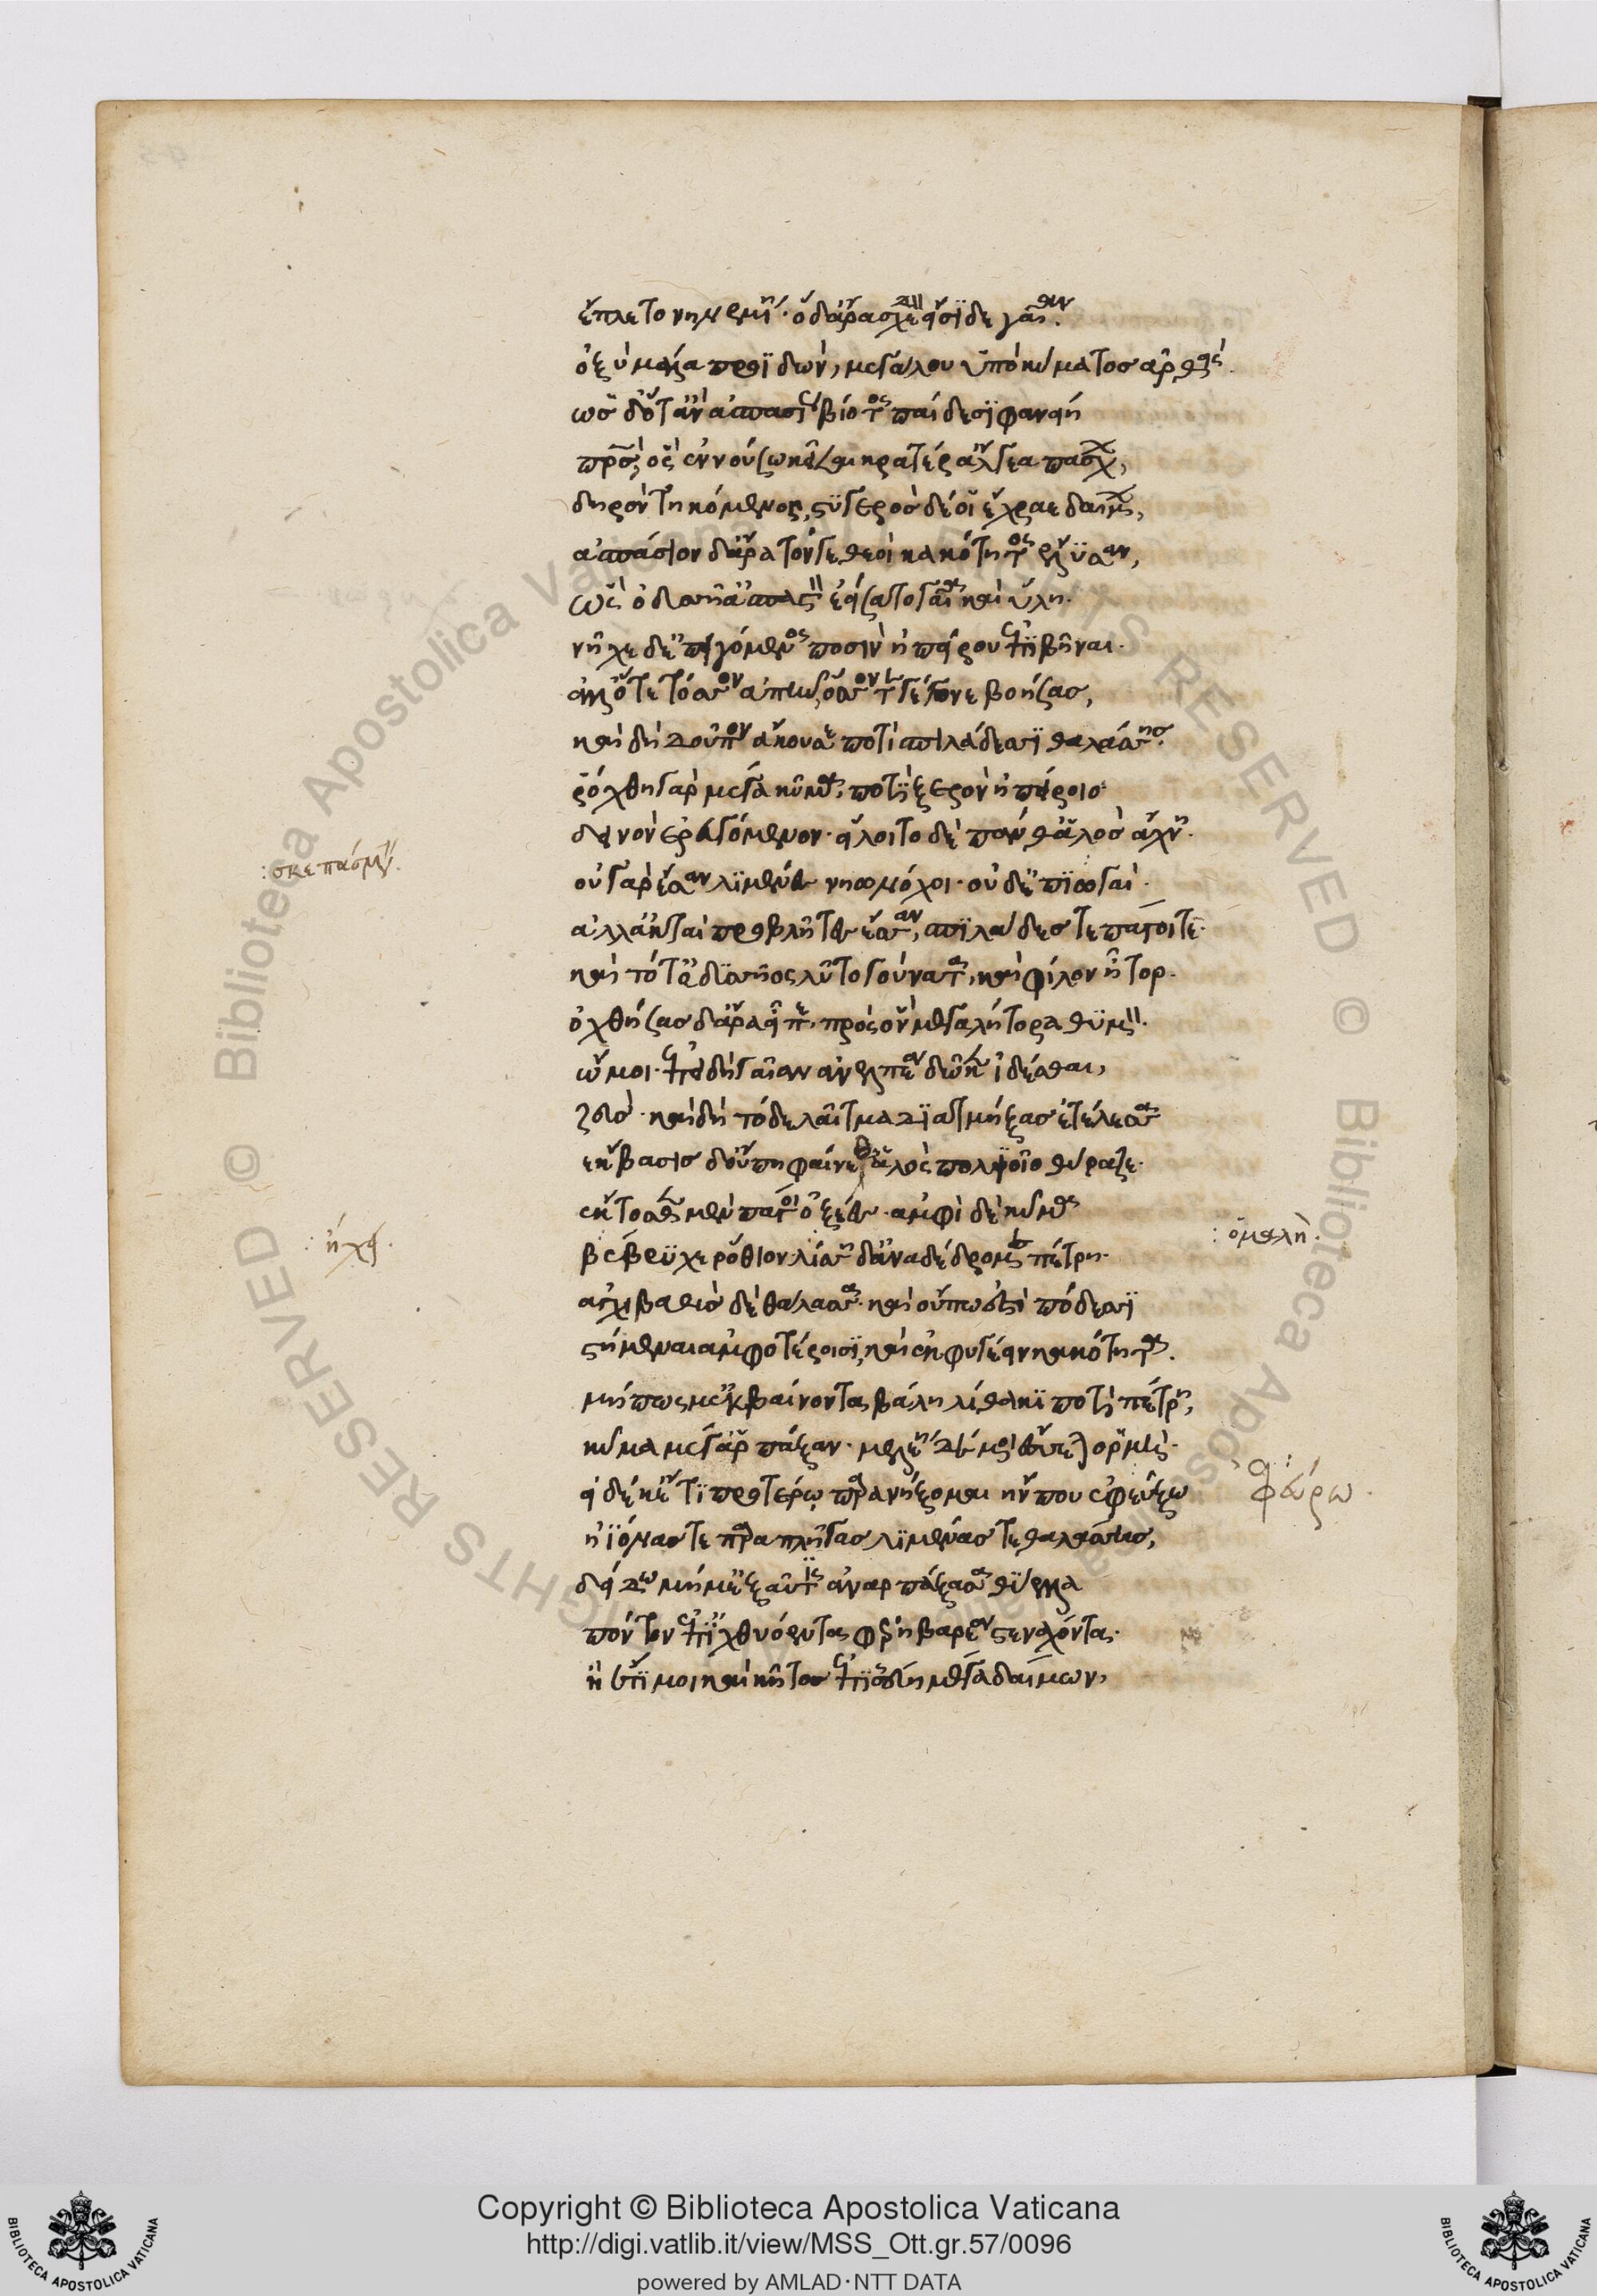 ἔπλετο νηνεμίη· ὁ δ' ἄρα σχεδὸν εἴσιδε γαῖαν.
ὀξὺ μάλα προϊδών, μεγάλου ὑπὸ κύματος ἀρθείς.
ὡς δ' ὅτ' ἂν ἀσπάσιος βίοτος παίδεσι φανείη
πατρός, ὃς ἐν νούσω κεῖται κρατέρ' ἄλγεα πάσχων,
δηρὸν τηκόμενος, στυγερὸς δέ οἱ ἔχραε δαίμων,
ἀσπάσιον δ' ἄρα τόνγε θεοὶ κακότητος ἔλυσαν,
ὣς ὀδυσῆ' ἀσπαστὸν ἐείσατο γαῖα καὶ ὕλη.
νῆχε δ' ἐπειγόμενος ποσὶν ἠπείρου ἐπιβῆναι.
ἀλλ' ὅτε τόσσον ἀπῆν ὅσσον τε γέγωνε βοήσας,
καὶ δὴ δοῦπον ἄκουσε ποτὶ σπιλάδεσσι θαλάσσης.
ῥόχθει γὰρ μέγα κῦμα ποτὶ ξερὸν ἠπείροιο
δεινὸν ἐρευγόμενον· εἴλυτο δὲ πάνθ' ἁλὸς ἄχνη.
οὐ γὰρ ἔσαν λιμένες νηῶν ὀχοι· οὐδ' ἐπιωγαί.
ἀλλ' ἀκταὶ προβλῆτες ἔσαν, σπιλάδες τε πάγοι τε.
καὶ τότ' ὀδυσσῆος λύτο γούνατα, καὶ φίλον ἦτορ.
ὀχθήσας δ' ἄρα εἶπε πρὸς ὃν μεγαλήτορα θυμόν.
ὤμοι· ἐπεὶ δὴ γαῖαν ἀελπέα δῶκεν ἰδέσθαι,
ζεύς· καὶ δὴ τόδε λαῖτμα διατμήξας ἐτέλεσσα
ἔκβασις δ' οὔπη φαίνεθ' ἁλὸς πολιοῖο θύραζε.
ἔκτοσθεν μὲν πάγοι ὀξέες· ἀμφὶ δὲ κῦμα
βέβρυχε ῥόθιον· λισσὴ δ' ἀναδέδρομε πέτρη.
ἀγχιβαθὴς δὲ θάλασσα· καὶ οὔπως ἔστι πόδεσσι
στήμεναι ἀμφοτέροισι, καὶ ἐκφυγέειν κακότητα.
μήπως μ' ἐκβαίνοντα βάλη λίθακι ποτὶ πέτρη,
κῦμα μέγ' ἁρπάξαν· μελέη δέ μοι ἔσσεται ὁρμή.
εἰ δέ κ' ἔτι προτέρω παρανήξομαι ἤν που ἐφεύρω
ἠϊόνας τε παραπλῆγας λιμένας τε θαλάσσης,
δείδω μή μ' ἐξαῦτις ἀναρπάξασα θύελλα
πόντον ἐπ' ἰχθυόεντα φέρη βαρέα στενάχοντα.
ἠ ἔτι μοι καὶ κῆτος ἐπισσεύη μέγα δαίμων,
: σκεπάσματα.
: ἠχεῖ.
: ὁμαλή.
ἐφεύρω.